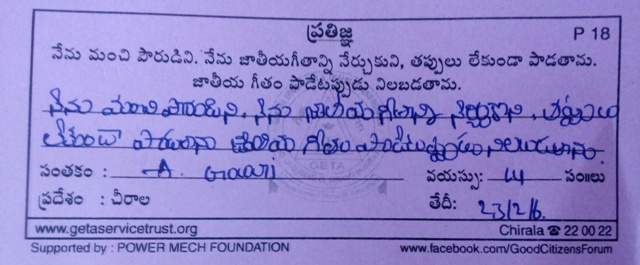 ప్రతిజ్ఞ P 18
నేను మంచి పౌరుడిని. నేను జాతీయగీతాన్ని నేర్చుకుని, తప్పులు లేకుండా పాడతాను.
జాతీయ గీతం పాడేటప్పుడు నిలబడతాను.
నేను మంచి పౌరుడిని, నేను జాతీయగీతాన్ని నేర్చుకుని, తప్పులు
లేకుండా పాడతాను జాతీయ గీతం పాడేటప్పుడు నిలబడతాను.
సంతకం : A. Gouri వయస్సు: 14 సం॥లు
ప్రదేశం : చీరాల తేదీ: 23/2/6.
www.getaservicetrust.org Chirala ☎ 22 00 22
Supported by : POWER MECH FOUNDATION www.facebook.com/GoodCitizensForum